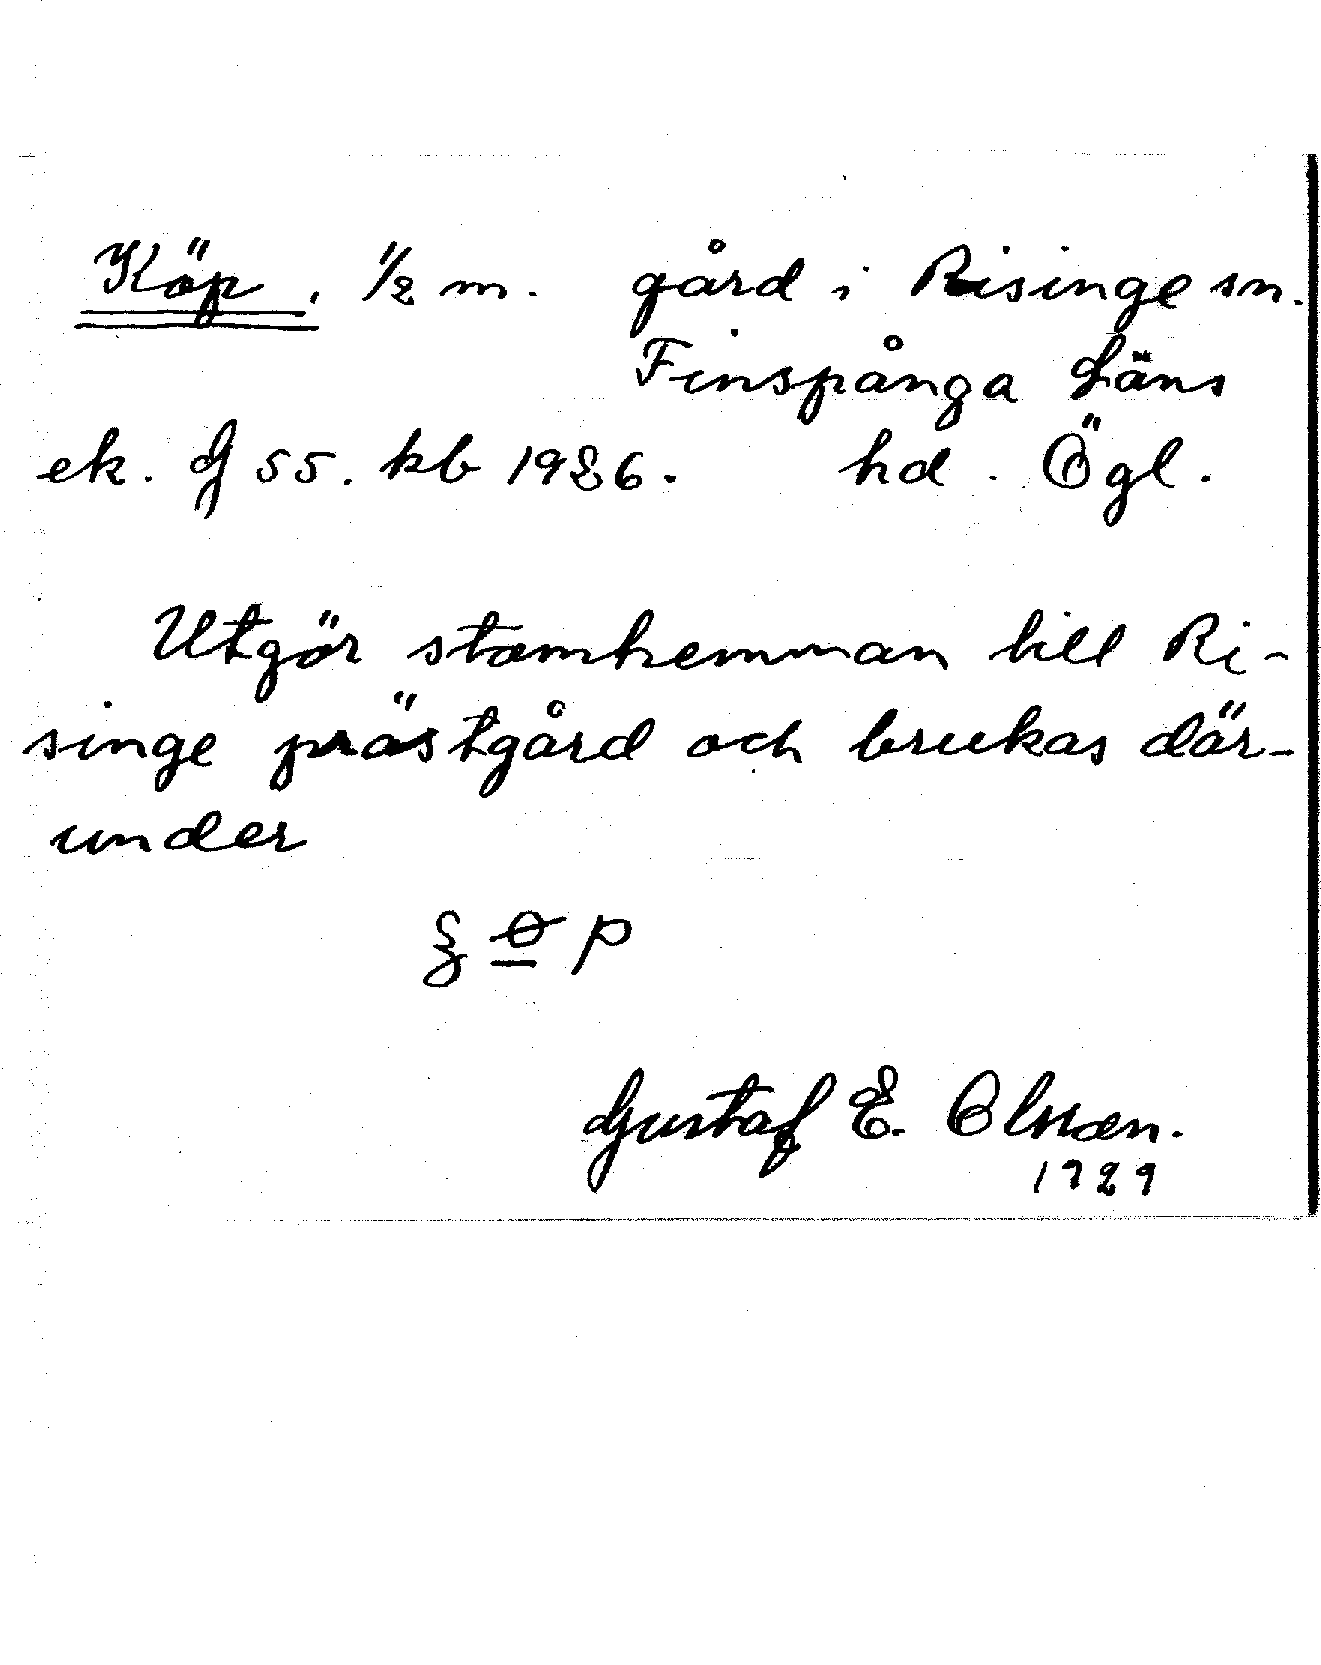 Köp, 1/2 m. gård i Risinge sn.
Finspånga Läns
ek. bl 55. kb 1926. hd. Ögl.
Utgör stamhemman till Ri-
singe prästgård och brukas där-
under
Gustaf E. Olsson.
1929